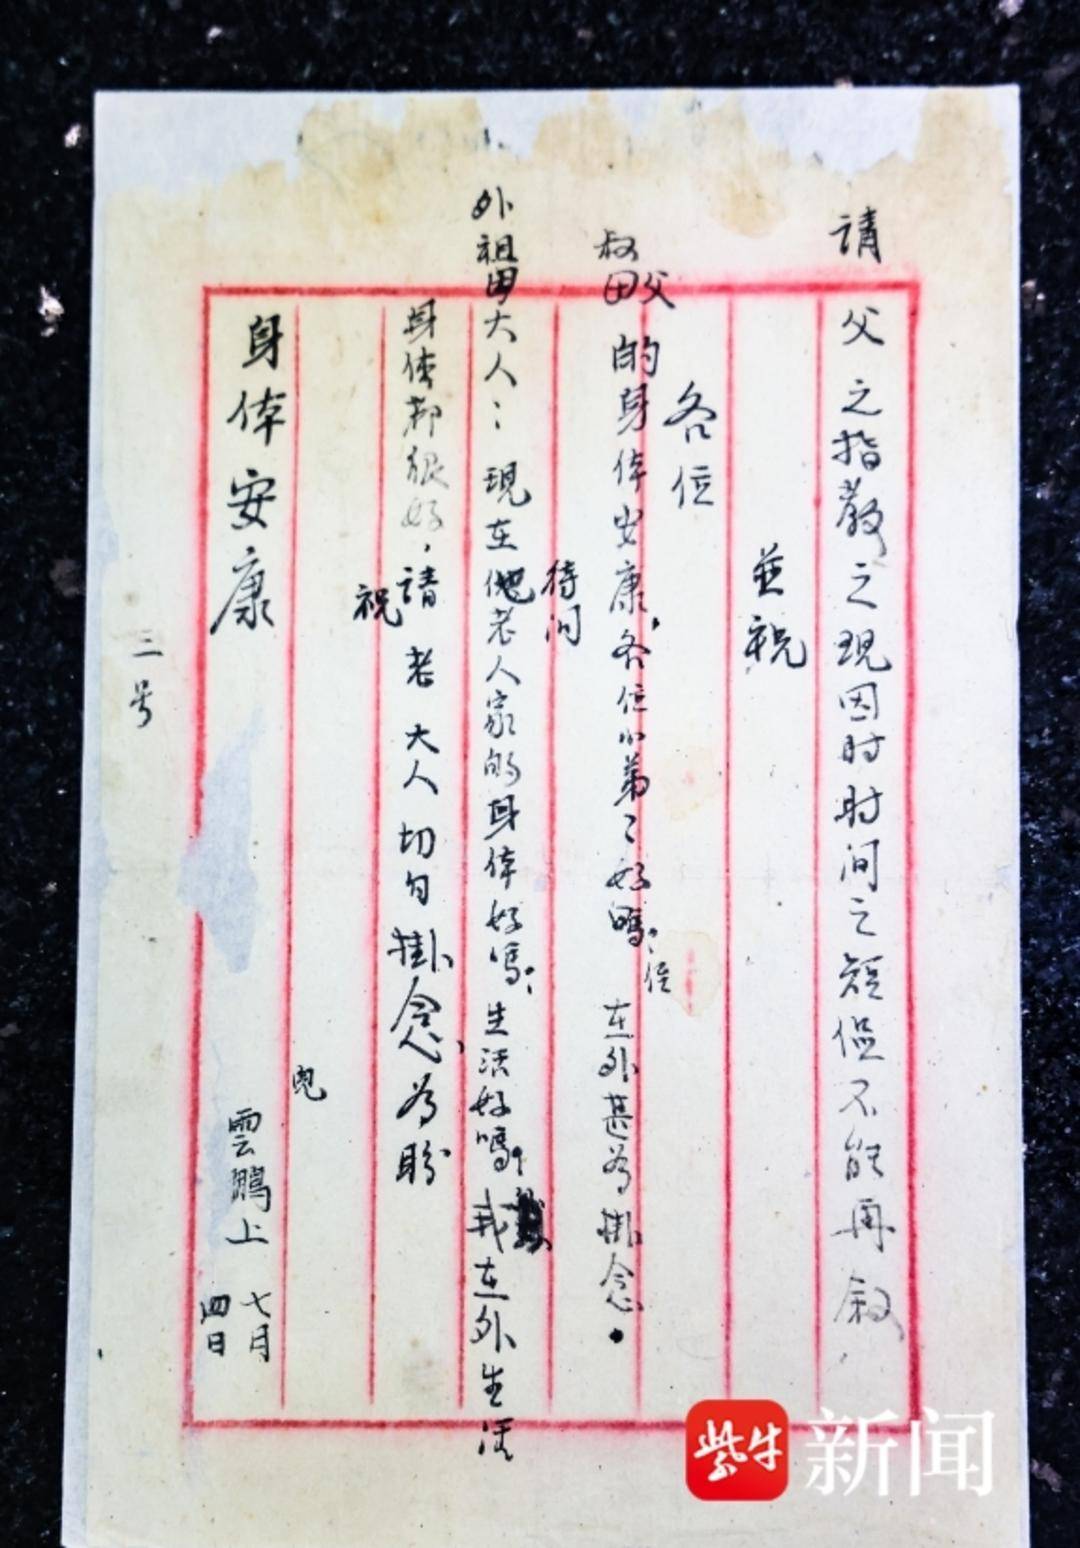 請
父之指教之现因时时间之短促不能再叙
並祝
各位
叔父
母的身体安康,各位小弟々好嗎?侄在外甚为掛念.
待问
外祖母大人: 现在他老人家的身体好嗎?生活好嗎?我在外生活
身体都很好,請老大人切勿掛念为盼
祝
身体安康
兒
雲鵬上
七月
四日
二号
紫牛新闻